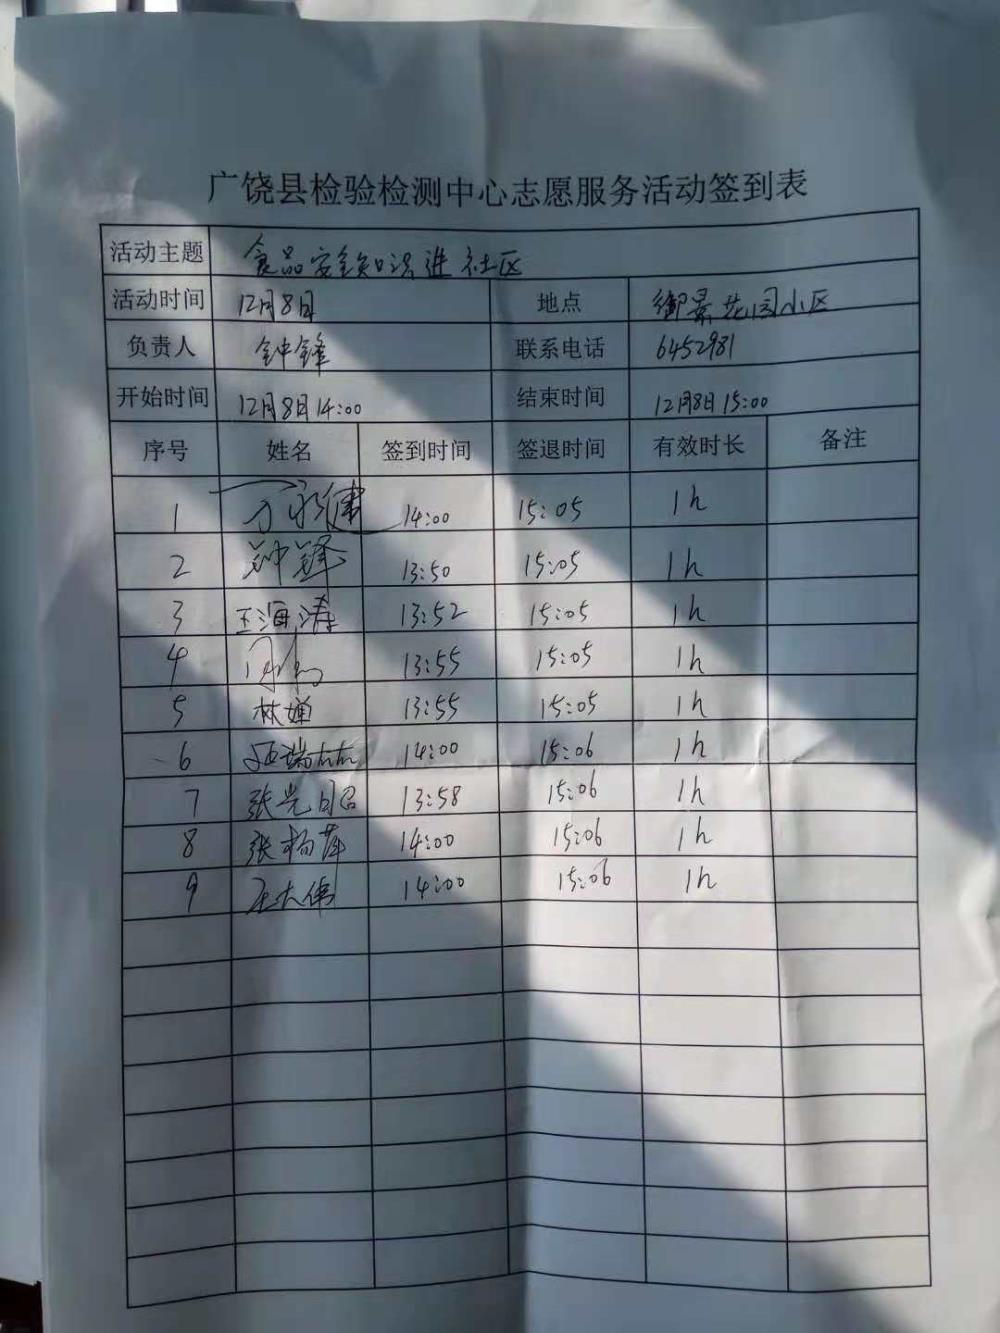 广饶县检验检测中心志愿服务活动签到表
活动主题 食品安全知识进社区
活动时间 12月8日 地点 御景花园小区
负责人 钟锋 联系电话 6452981
开始时间 12月8日14:00 结束时间 12月8日15:00
序号 姓名 签到时间 签退时间 有效时长 备注
1 14:00 15:05 1h
2 钟锋 13:50 15:05 1h
3 王海涛 13:52 15:05 1h
4 13:55 15:05 1h
5 林婵 13:55 15:05 1h
6 14:00 15:06 1h
7 张光昭 13:58 15:06 1h
8 张杨萍 14:00 15:06 1h
9 王大伟 14:00 15:06 1h